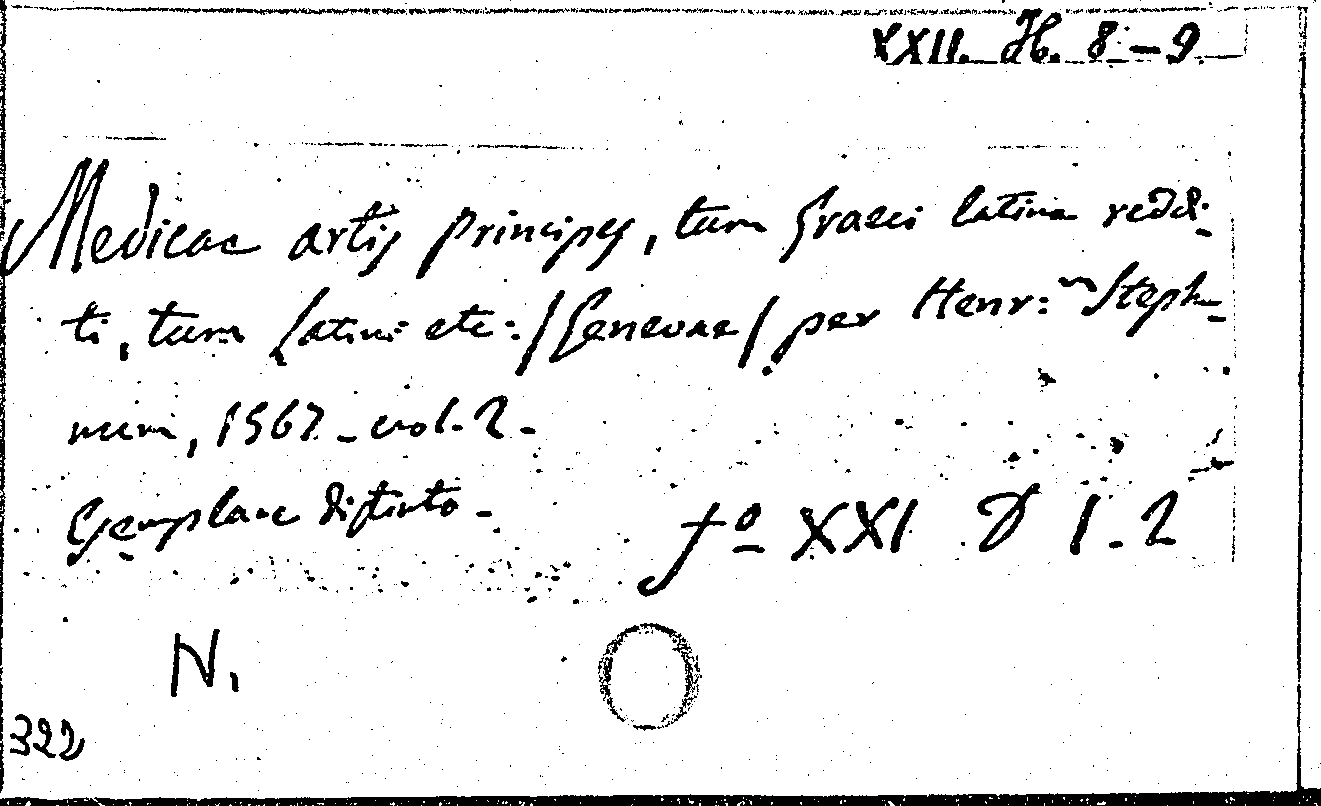 XXII. Hb. 8-9.
Medicae artis principes, tum Graeci latina reddi-
ti, tum Latini etc: /Genevae/ per Henr:m Stepha-
num, 1567 - vol. 2 -
Esemplare distinto -
fo XXI D 1-2
N.
322